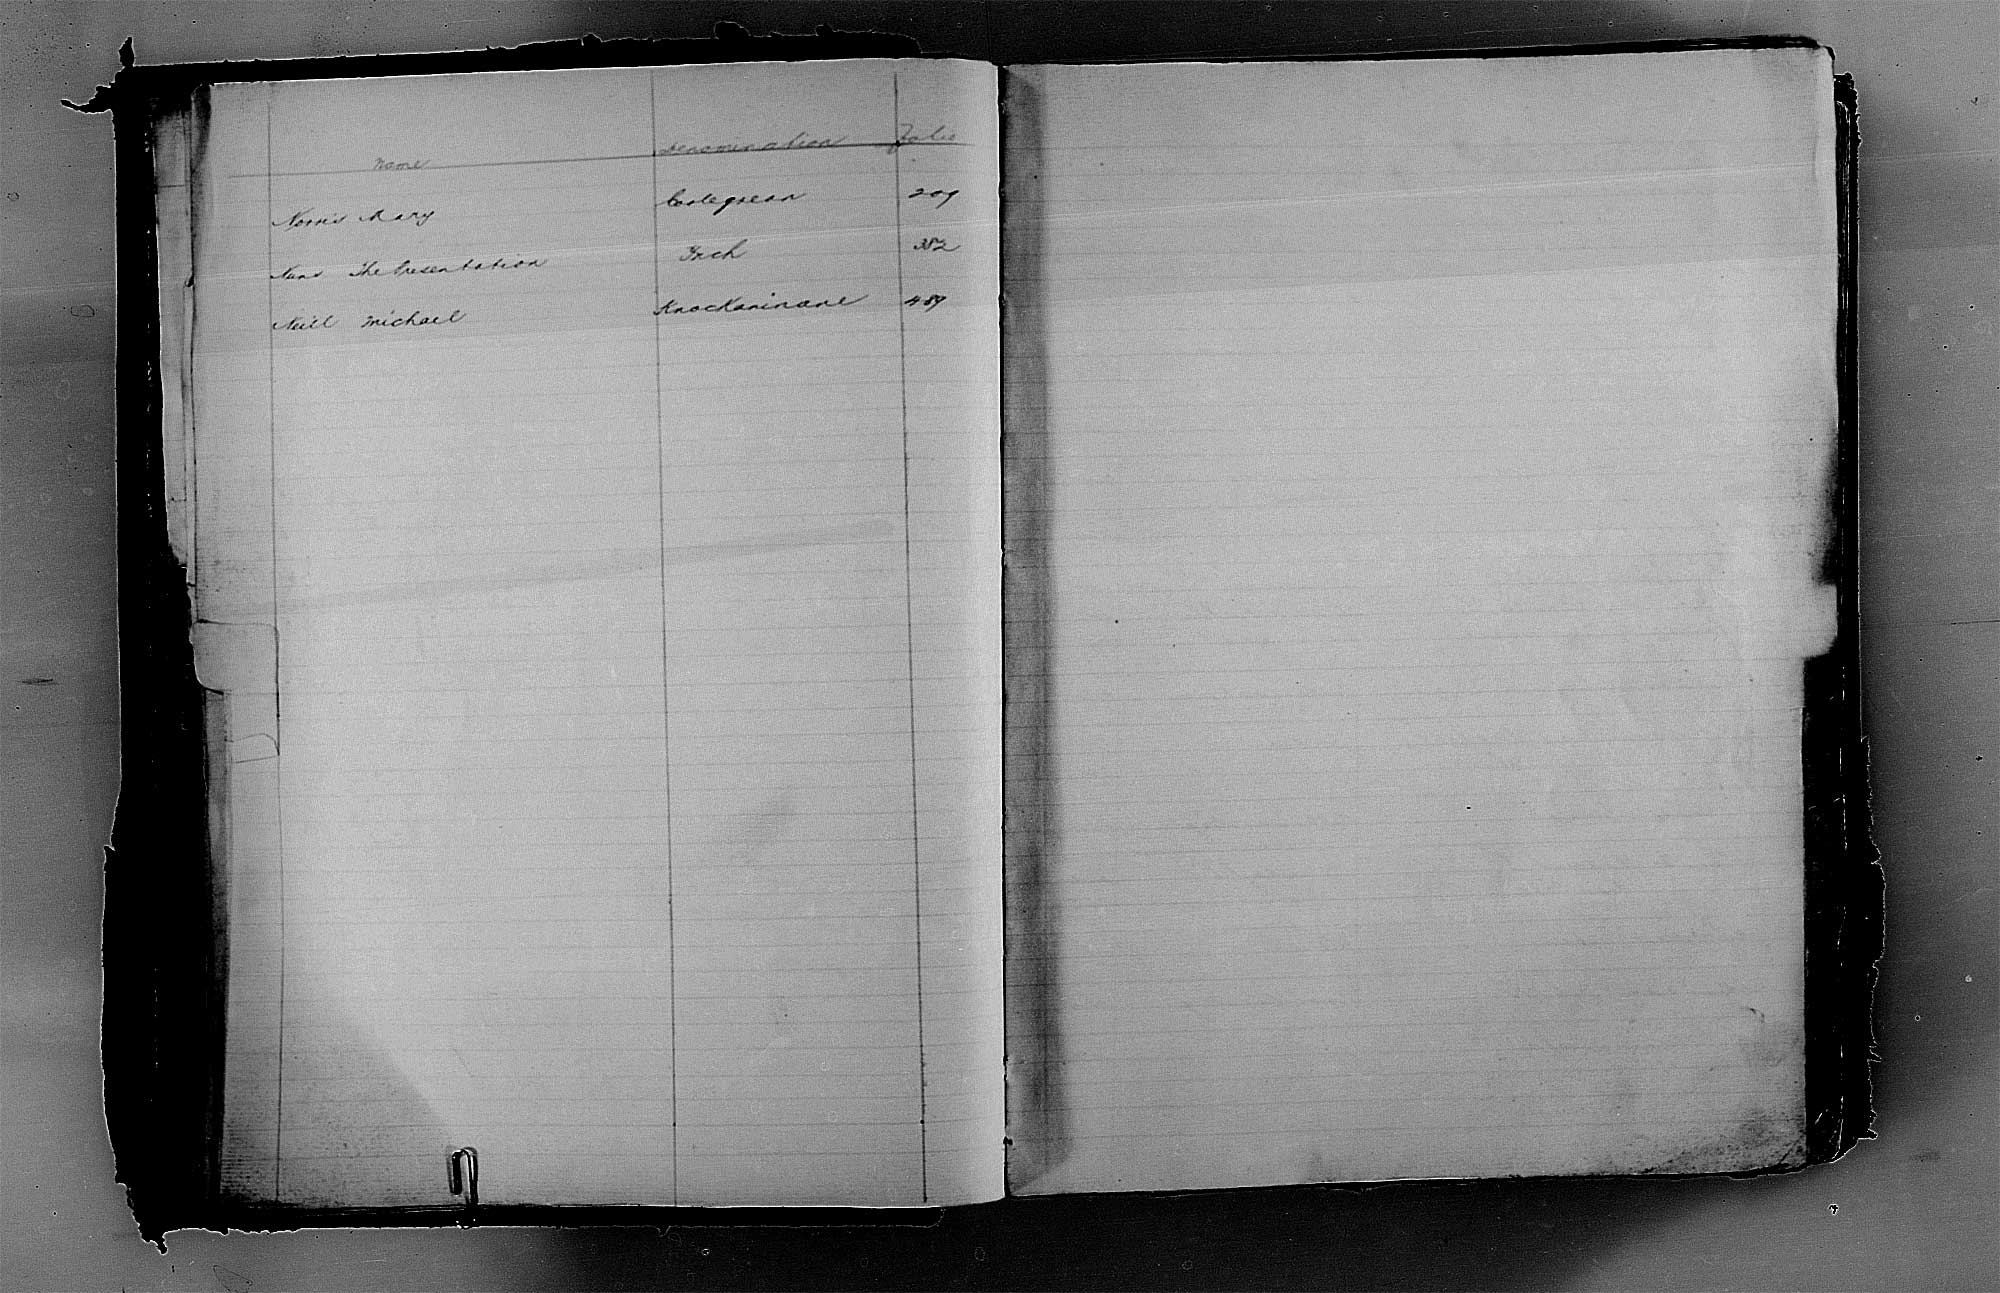 Name Denomination Folio
Norris Mary Coolegrean 209
Nuns The Presentation Inch 352
Neill Michael Knockaninane 489